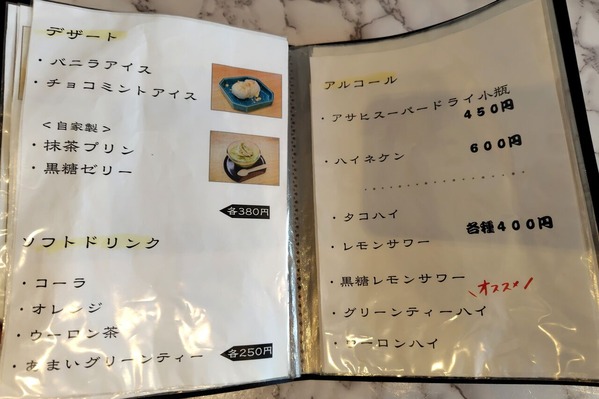 デザート
・バニラアイス
・チョコミントアイス
＜自家製＞
・抹茶プリン
・黒糖ゼリー
各380円
ソフトドリンク
・コーラ
・オレンジ
・ウーロン茶
・あまいグリーンティー
各250円
アルコール
・アサヒスーパードライ小瓶
450円
・ハイネケン
600円
・タコハイ
各種400円
・レモンサワー
・黒糖レモンサワー
オススメ!
・グリーンティーハイ
・ウーロンハイ